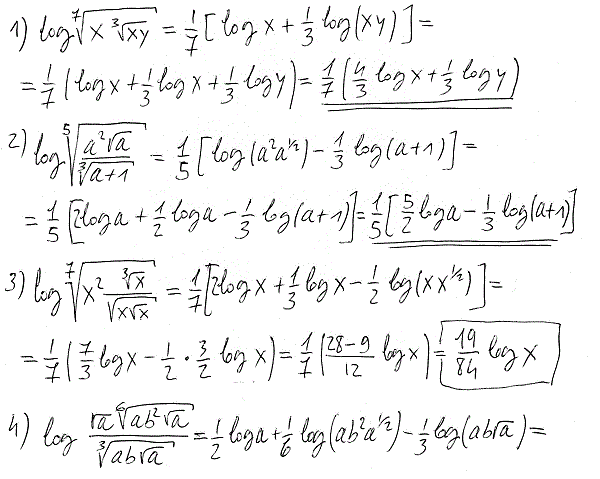 1) log ⁷√(x ∛(xy)) = 1/7 [log x + 1/3 log(xy)] =
= 1/7 (log x + 1/3 log x + 1/3 log y) = 1/7 (4/3 log x + 1/3 log y)
2) log ⁵√(a²√a / ∛(a+1)) = 1/5 [log(a²a^(1/2)) - 1/3 log(a+1)] =
= 1/5 [2log a + 1/2 log a - 1/3 log(a+1)] = 1/5 [5/2 log a - 1/3 log(a+1)]
3) log ⁷√(x² ∛x / √(x√x)) = 1/7 [2log x + 1/3 log x - 1/2 log(xx^(1/2))] =
= 1/7 (7/3 log x - 1/2 · 3/2 log x) = 1/7 (28-9/12 log x) = 19/84 log x
4) log √a ⁶√(ab²√a) / ∛(ab√a) = 1/2 log a + 1/6 log(ab²a^(1/2)) - 1/3 log(ab√a) =